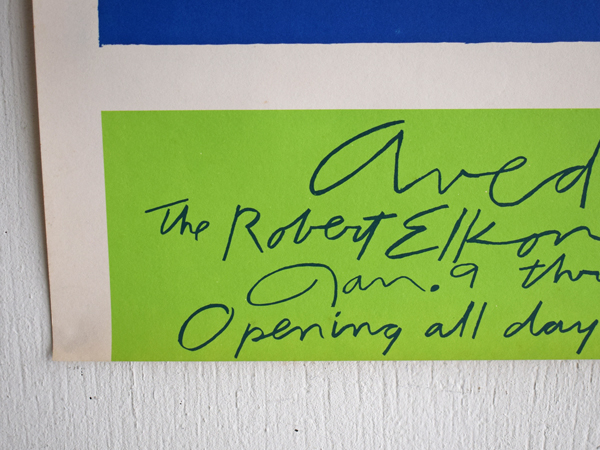 Aved
The Robert Elkon
Jan. 9 thr
Opening all day